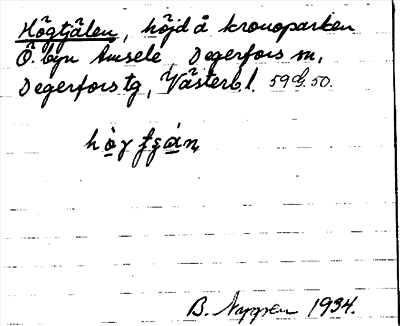 Högtjälen, höjd å kronoparken
Ö. byn Amsele, Degerfors sn,
Degerfors tg, Västerb l. 59 G. 50.
B. Nyppen 1934.